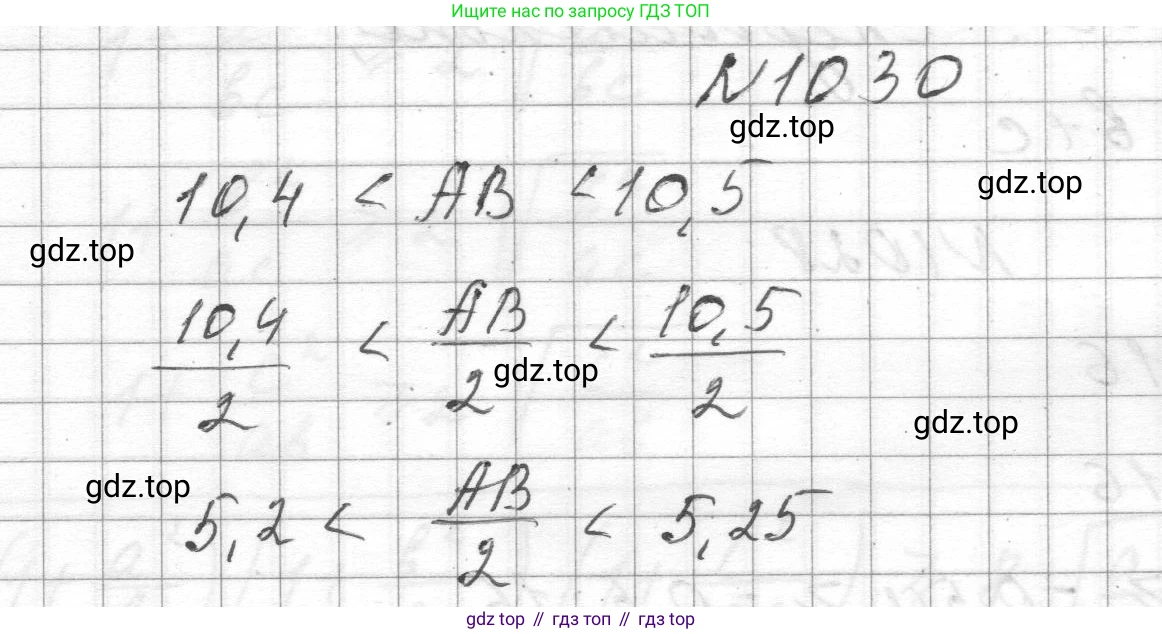 Ищите нас по запросу ГДЗ ТОП
N1030
gdz.top
10,4 < AB < 10,5
gdz.top
gdz.top
10,4/2 < AB/2 < 10,5/2
gdz.top
gdz.top
gdz.top
5,2 < AB/2 < 5,25
gdz top // гдз топ // гдз top